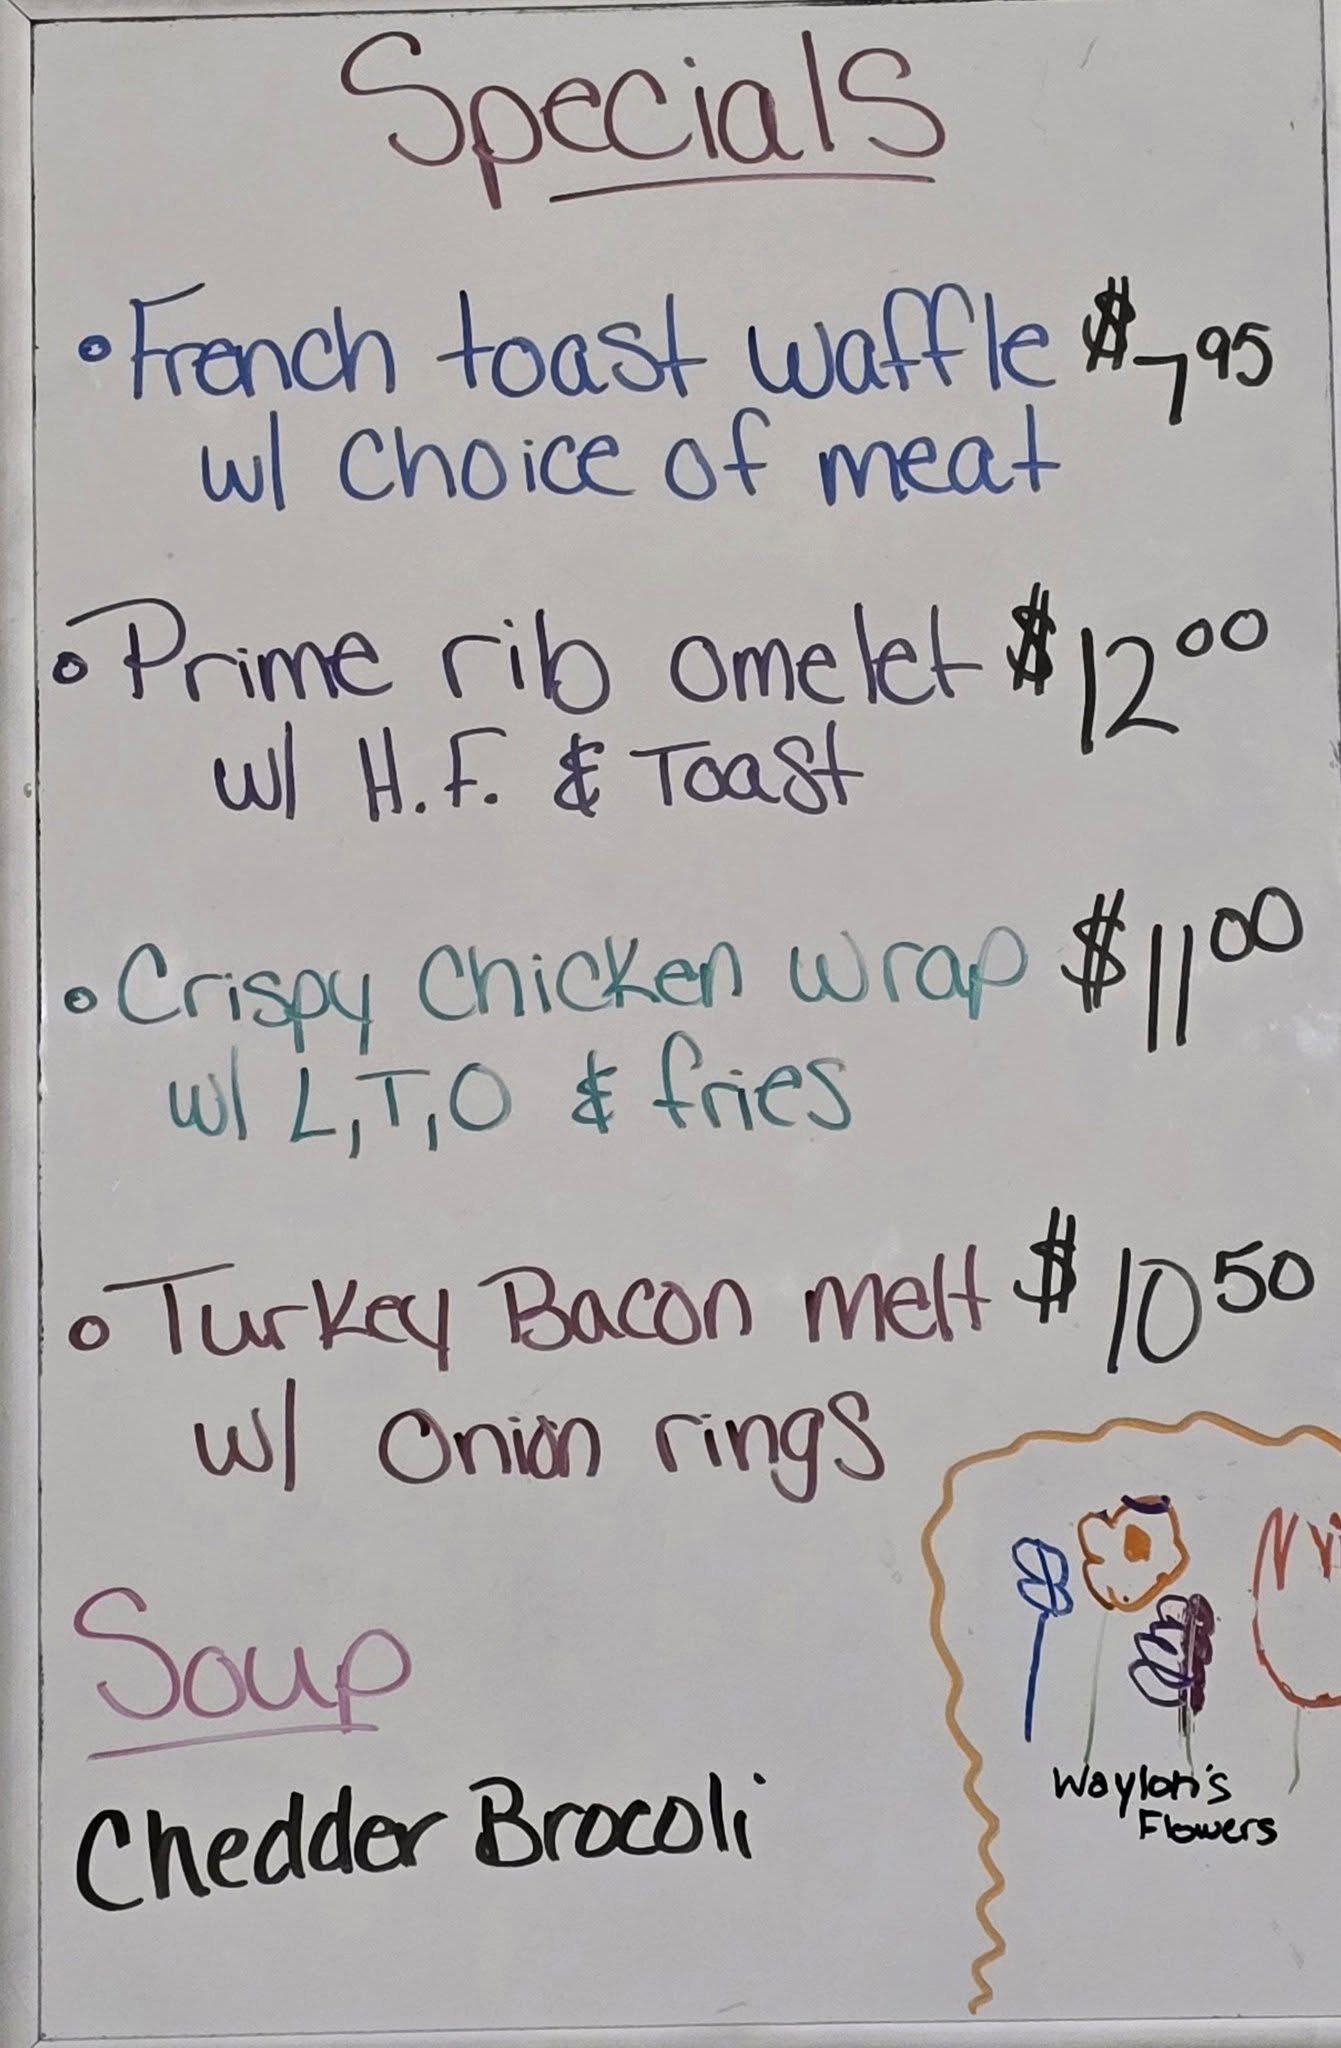 Specials
• French toast waffle $7.95
w/ choice of meat
• Prime rib omelet $12.00
w/ H.F. & Toast
• Crispy Chicken wrap $11.00
w/ L,T,O & fries
• Turkey Bacon melt $10.50
w/ Onion rings
Soup
Chedder Brocoli
Waylon's
Flowers